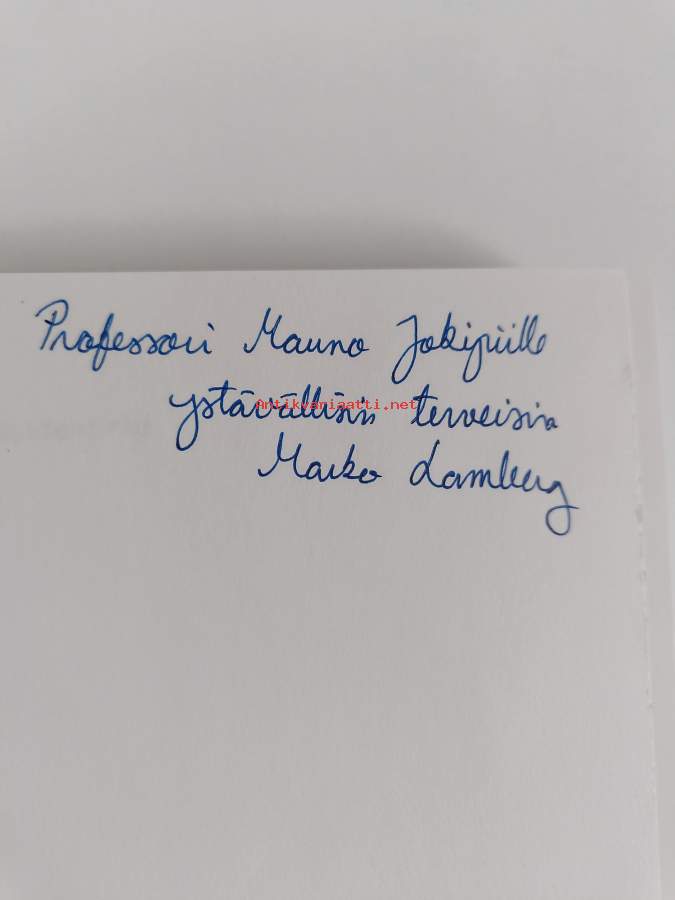 Professori Mauno Jokipiille
ystävällisin terveisin
Antikvariaatti.net
Marko Lamberg